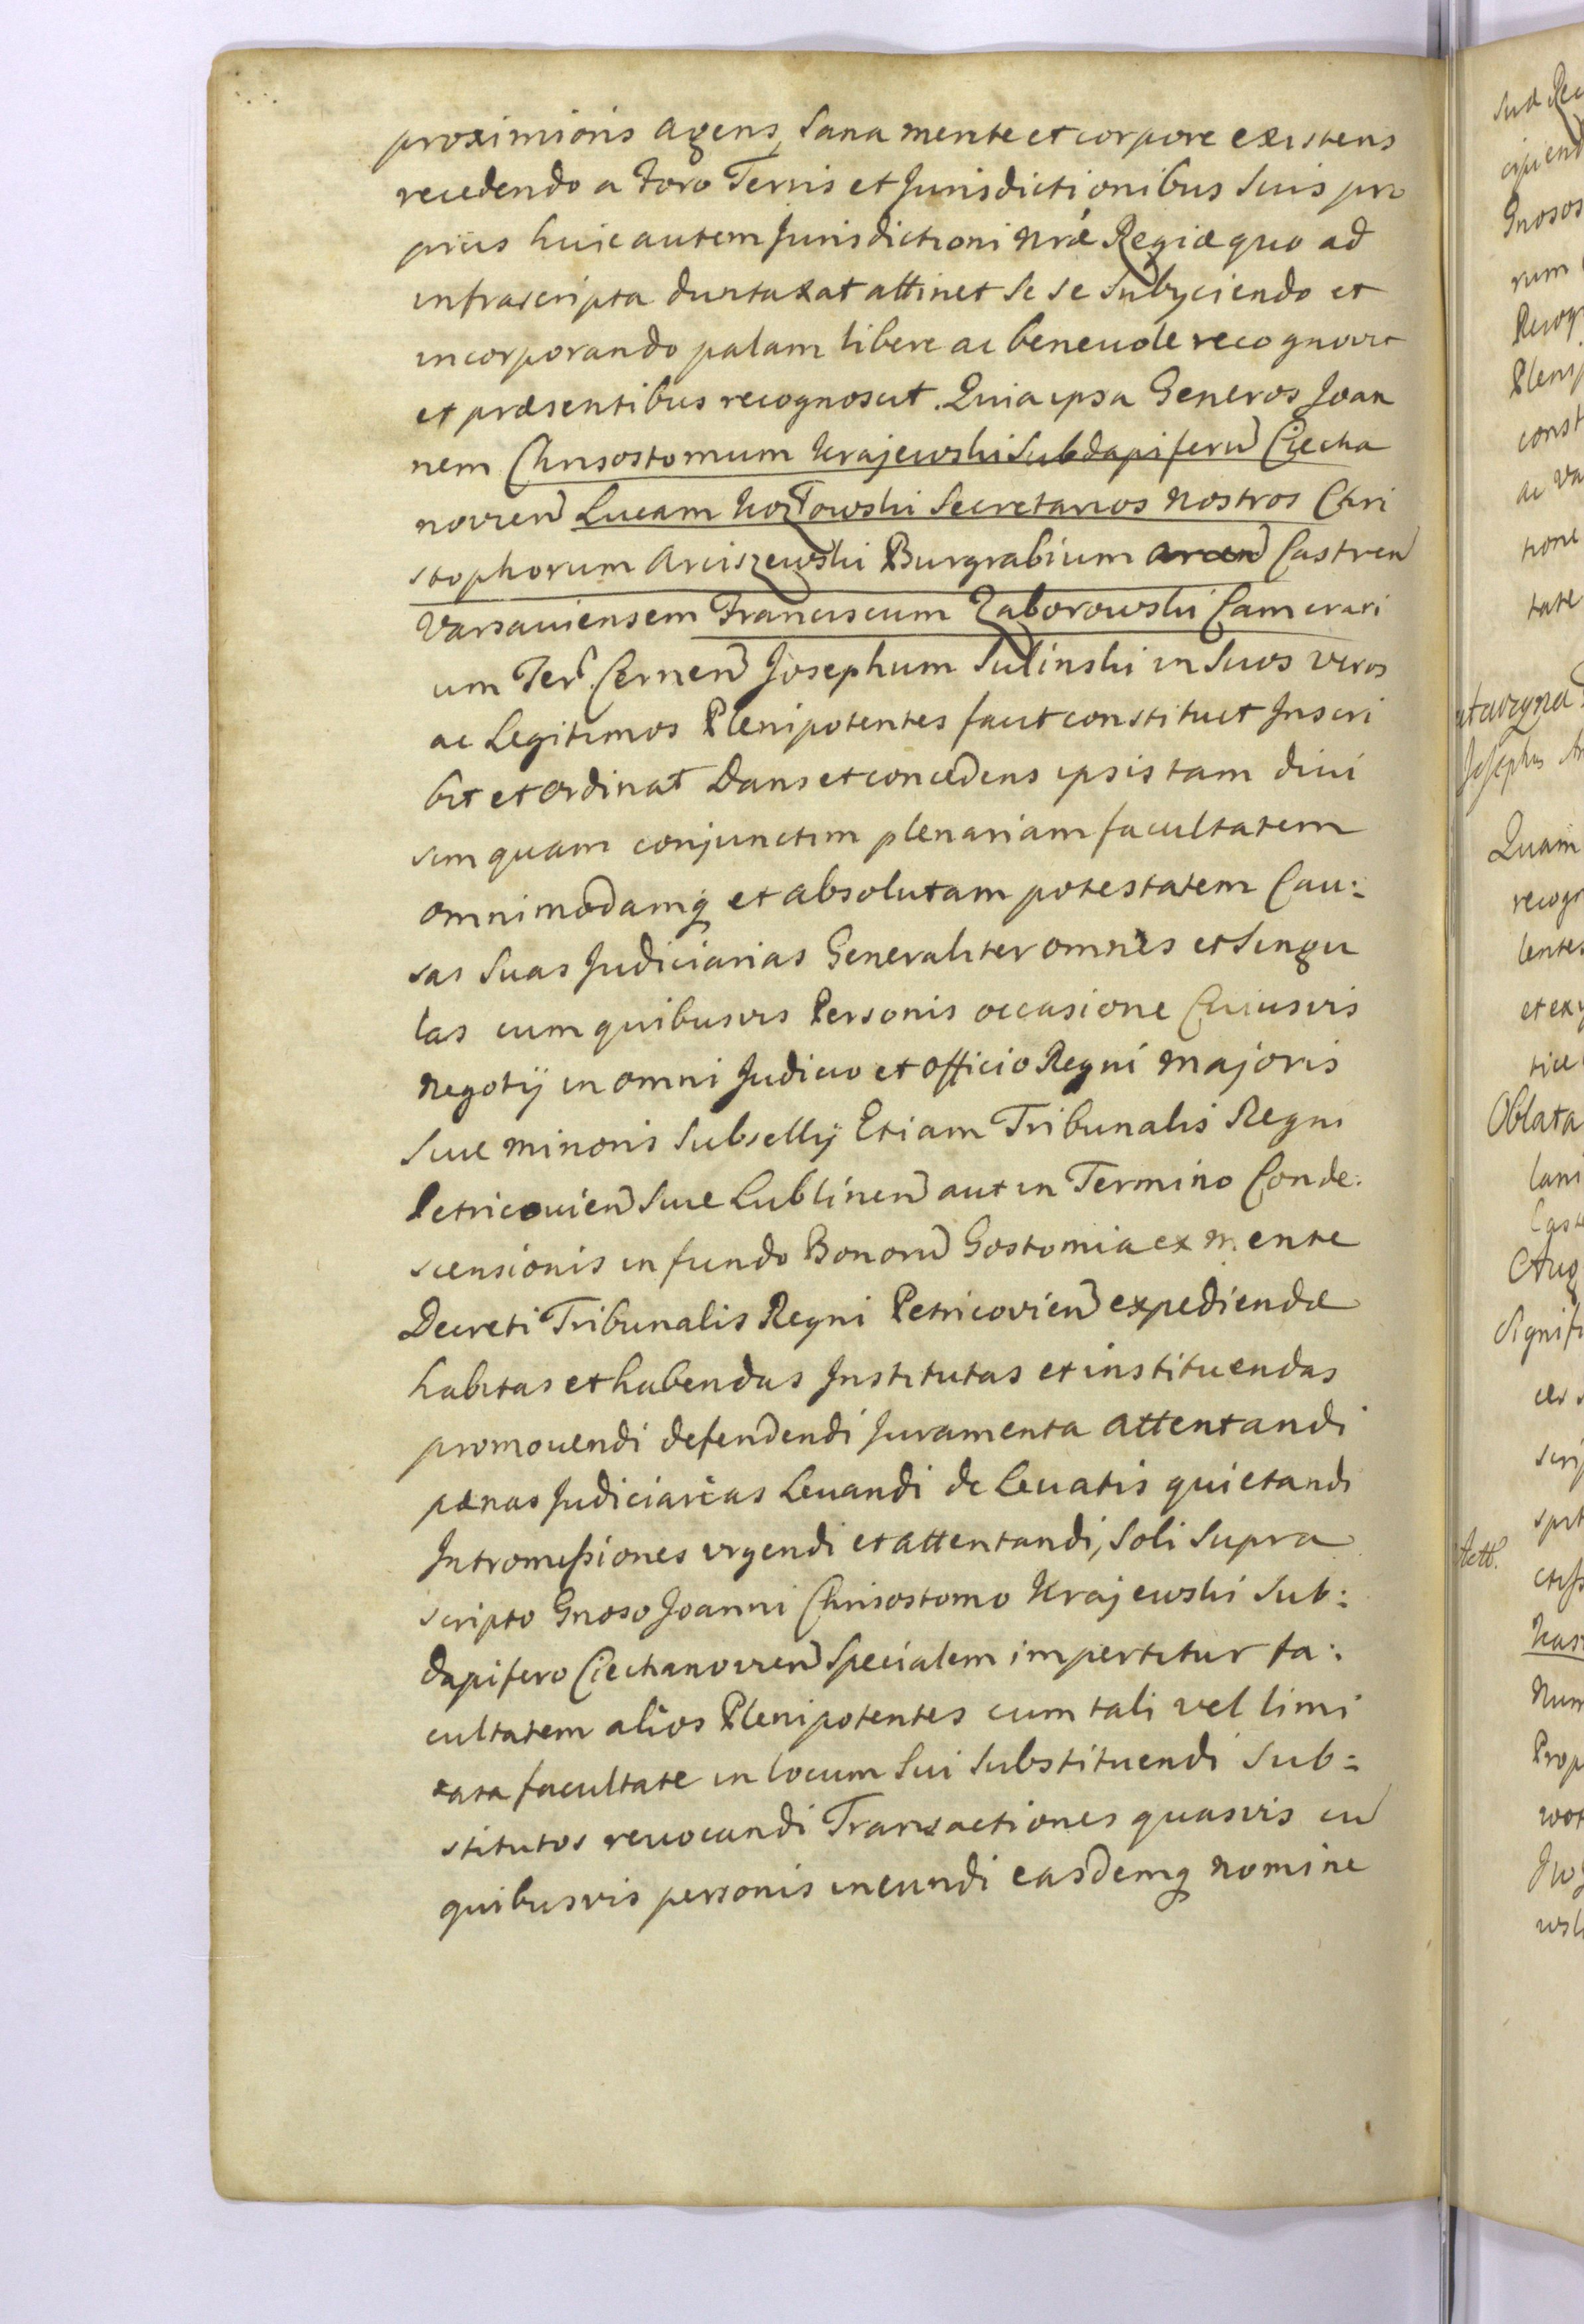 proximioris agens, sana mente et corpore existens
recedendo a Foro Terris et Jurisdictionibus Suis pro
priis huic autem Jurisdictioni nrae Regiae quo ad
infrascripta duntaxat attinet se se subyciendo et
incorporando palam libere ac beneuole recognovit
et praesentibus recognoscit. Quia ipsa Generos Joan
nem Chrisostomum Krajewski Subdapiferu Ciecha
novien Lucam Kozłowski Secretarios Nostros Chri
stophorum Arciszewski Burgrabium arcen Castren
Varsauiensem Franciscum Zaborowski Camerari
um Ter. Cernen Josephum Sulinski in Suos veros
ac Legitimos Plenipotentes facit constituit Inscri
bit et ordinat Dans et concedens ipsis tam diui
sim quam conjunctim plenariam facultatem
omnimodamq et absolutam potestatem Cau:
sas Suas Judiciarias Generaliter omnes et Singu
las cum quibusvis Personis occasione Cuiusvis
Negotij in omni Judicio et officio Regni Majoris
Siue minoris Subsellij Etiam Tribunalis Regni
Petricouien Siue Lublinen aut in Termino Conde:
scensionis in fundo Bonoru Gostomia ex mente
Decreti Tribunalis Regni Petricovien expediendae
habitas et habendas Institutas et instituendas
promouendi defendendi Juramenta attentandi
paenas Judiciarias Leuandi de leuatis quietandi
Intromissiones urgendi et attentandi, Soli Supra
scripto Gnoso Joanni Chrisostomo Krajewski Sub:
dapifero Ciechanovien Specialem impertitur fa:
cultatem alios Plenipotentes cum tali vel limi
tata facultate in locum Sui Substituendi Sub:
stitutos reuocandi Transactiones quasvis cu
quibusvis personis ineundi easdemq nomine